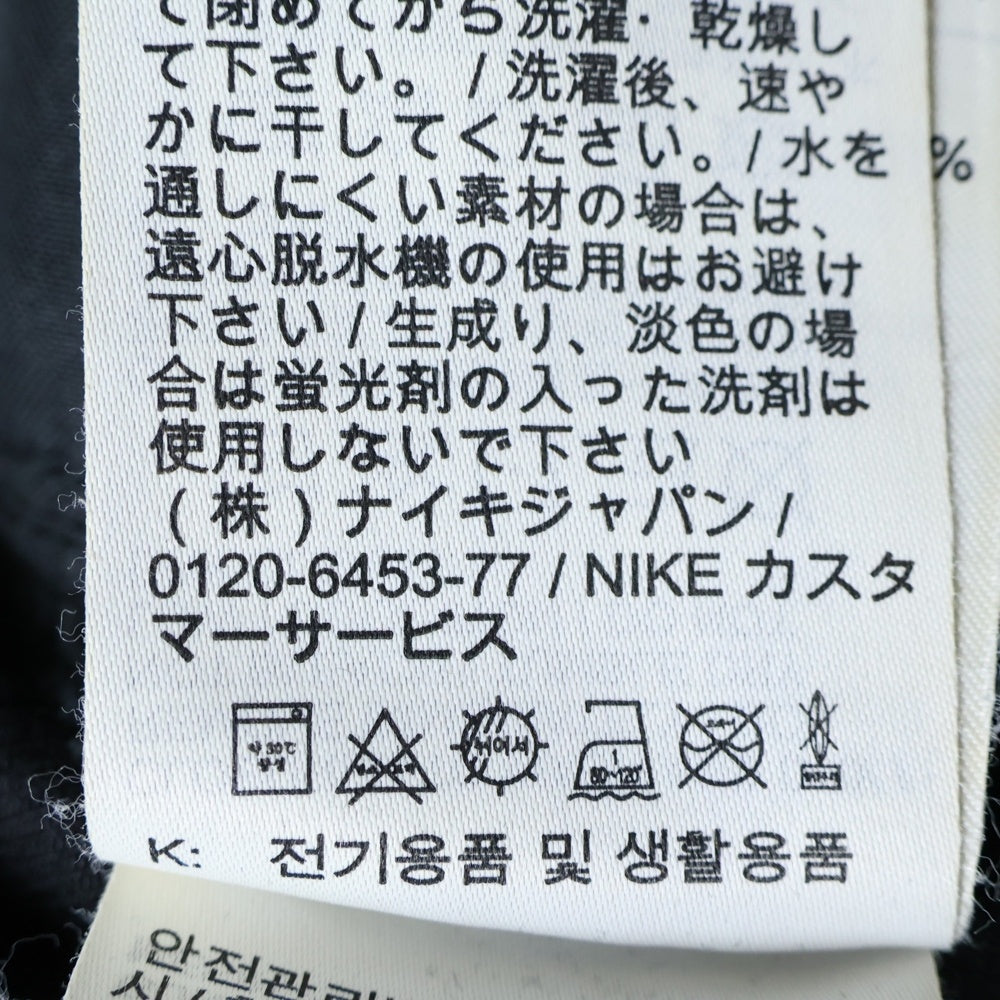 て閉めてから洗濯・乾燥し
て下さい。/洗濯後、速や
かに干してください。/水を
%
通しにくい素材の場合は、
遠心脱水機の使用はお避け
下さい/生成り、淡色の場
合は蛍光剤の入った洗剤は
使用しないで下さい
(株)ナイキジャパン/
0120-6453-77 / NIKE カスタ
マーサービス
약 30℃
중성
뉘어서
80~120℃
드라이
K: 전기용품 및 생활용품
안전관리